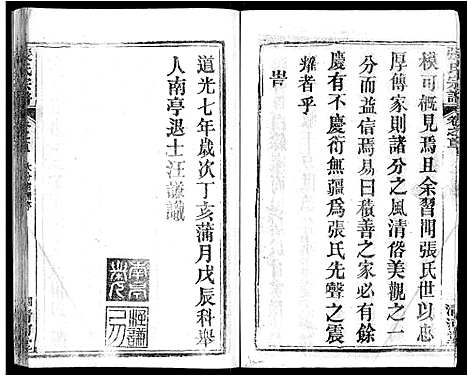 張氏宗譜
模可慨見焉且余習聞張氏世以忠
厚傳家則諸分之風清俗美觀之一
分而益信焉易曰積善之家必有餘
慶有不慶衍無疆爲張氏先聲之震
耀者乎
旹
道光七年歲次丁亥蒲月戊辰科舉
人南亭退士汪謙識